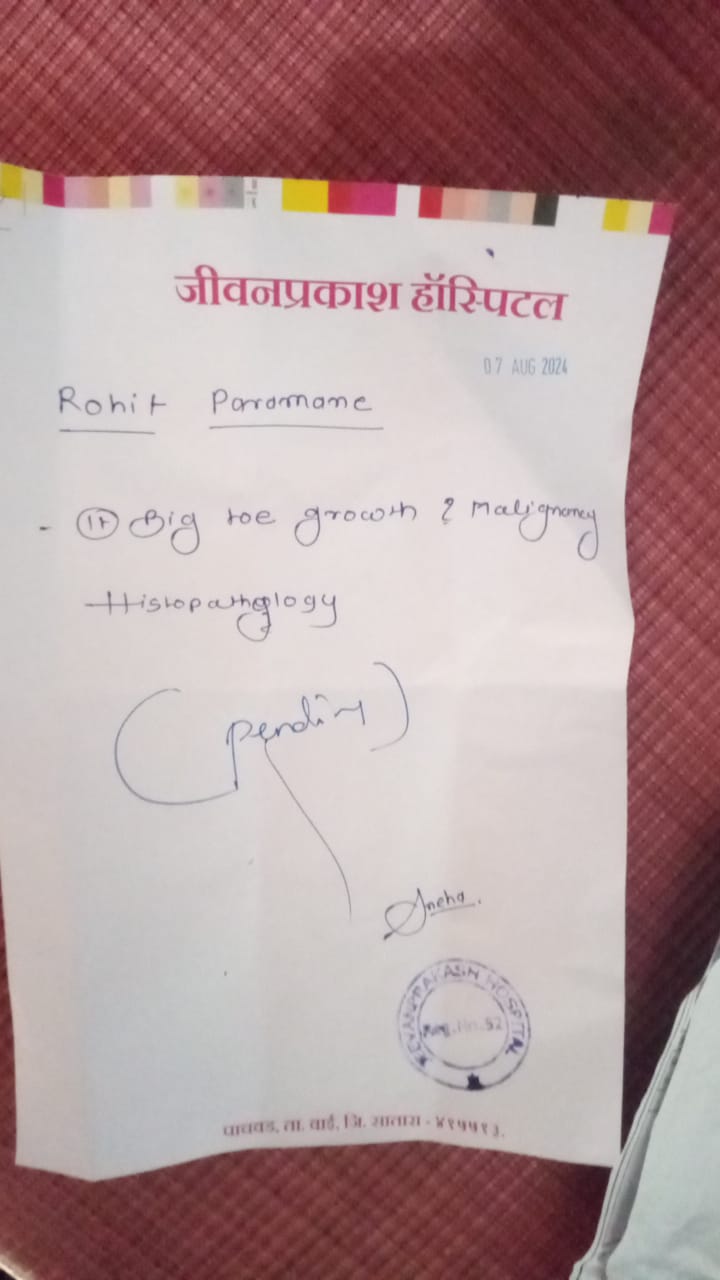 जीवनप्रकाश हॉस्पिटल
07 AUG 2024
Rohit Paramane
- Big toe growth ? Malignancy
Histopathology
(pending)
Sneha.
JEEVANPRAKASH HOSPITAL
Reg. No. 52
पाचवड, ता. वाई, जि. सातारा - ४१५५१३.